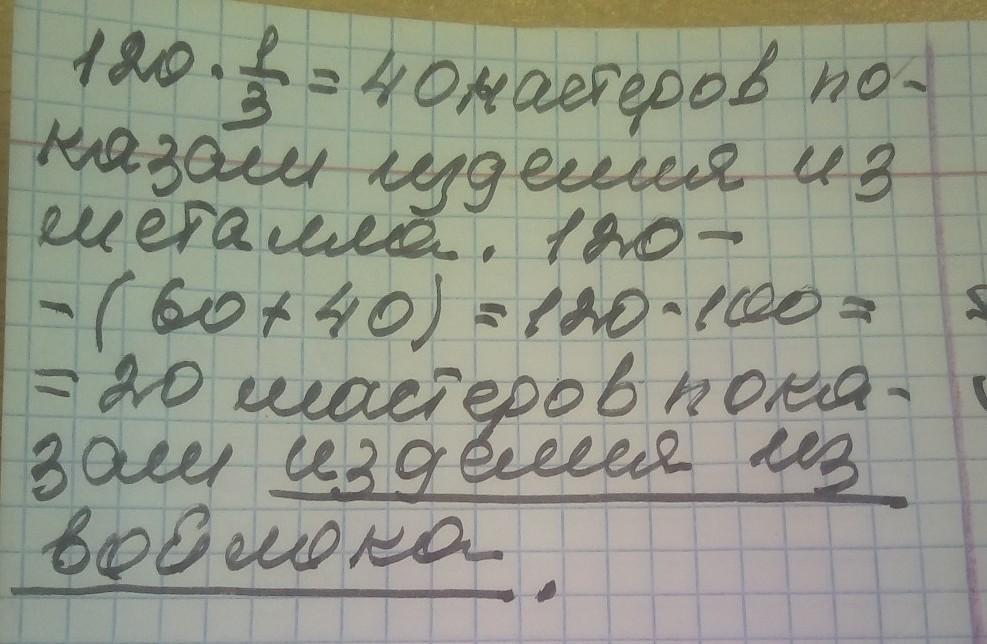 120 · 1/3 = 40 мастеров по-
казали изделия из
металла. 120 –
– (60 + 40) = 120 - 100 =
= 20 мастеров пока-
зали изделия из
войлока.